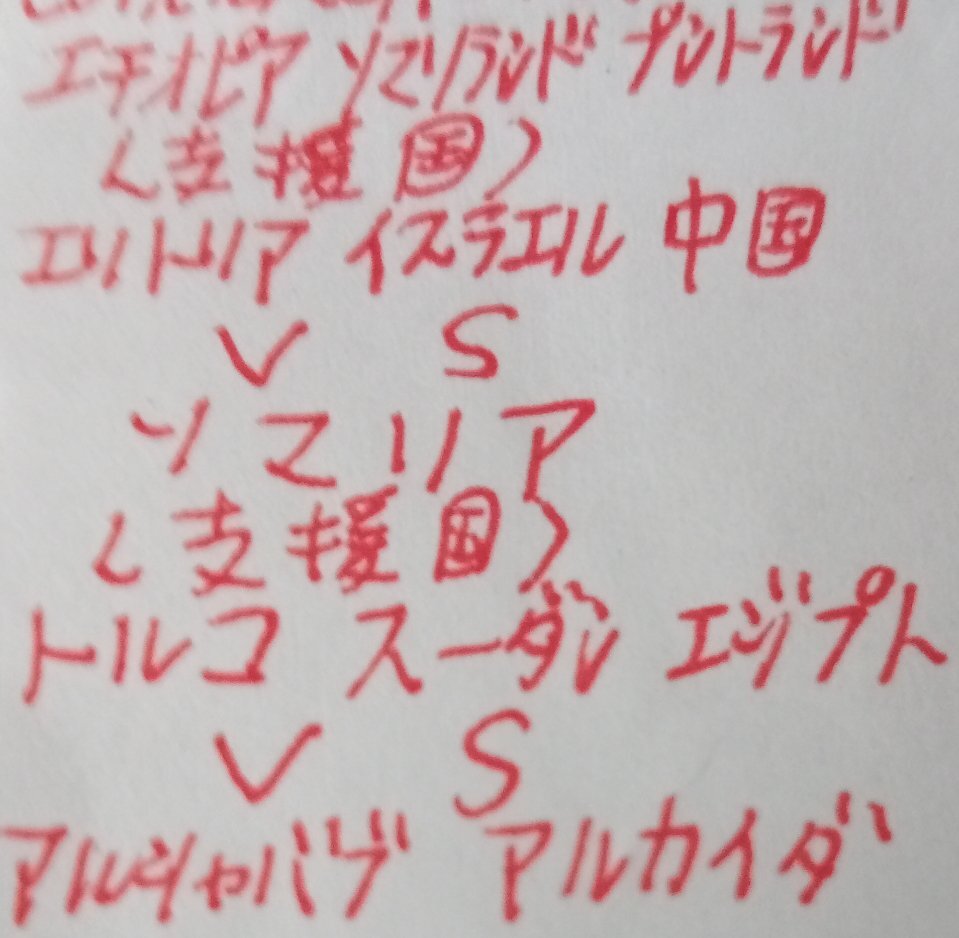 エチオピア ソマリランド プントランド
(支援国)
エリトリア イスラエル 中国
V S
ソマリア
(支援国)
トルコ スーダン エジプト
V S
アルシャバブ アルカイダ